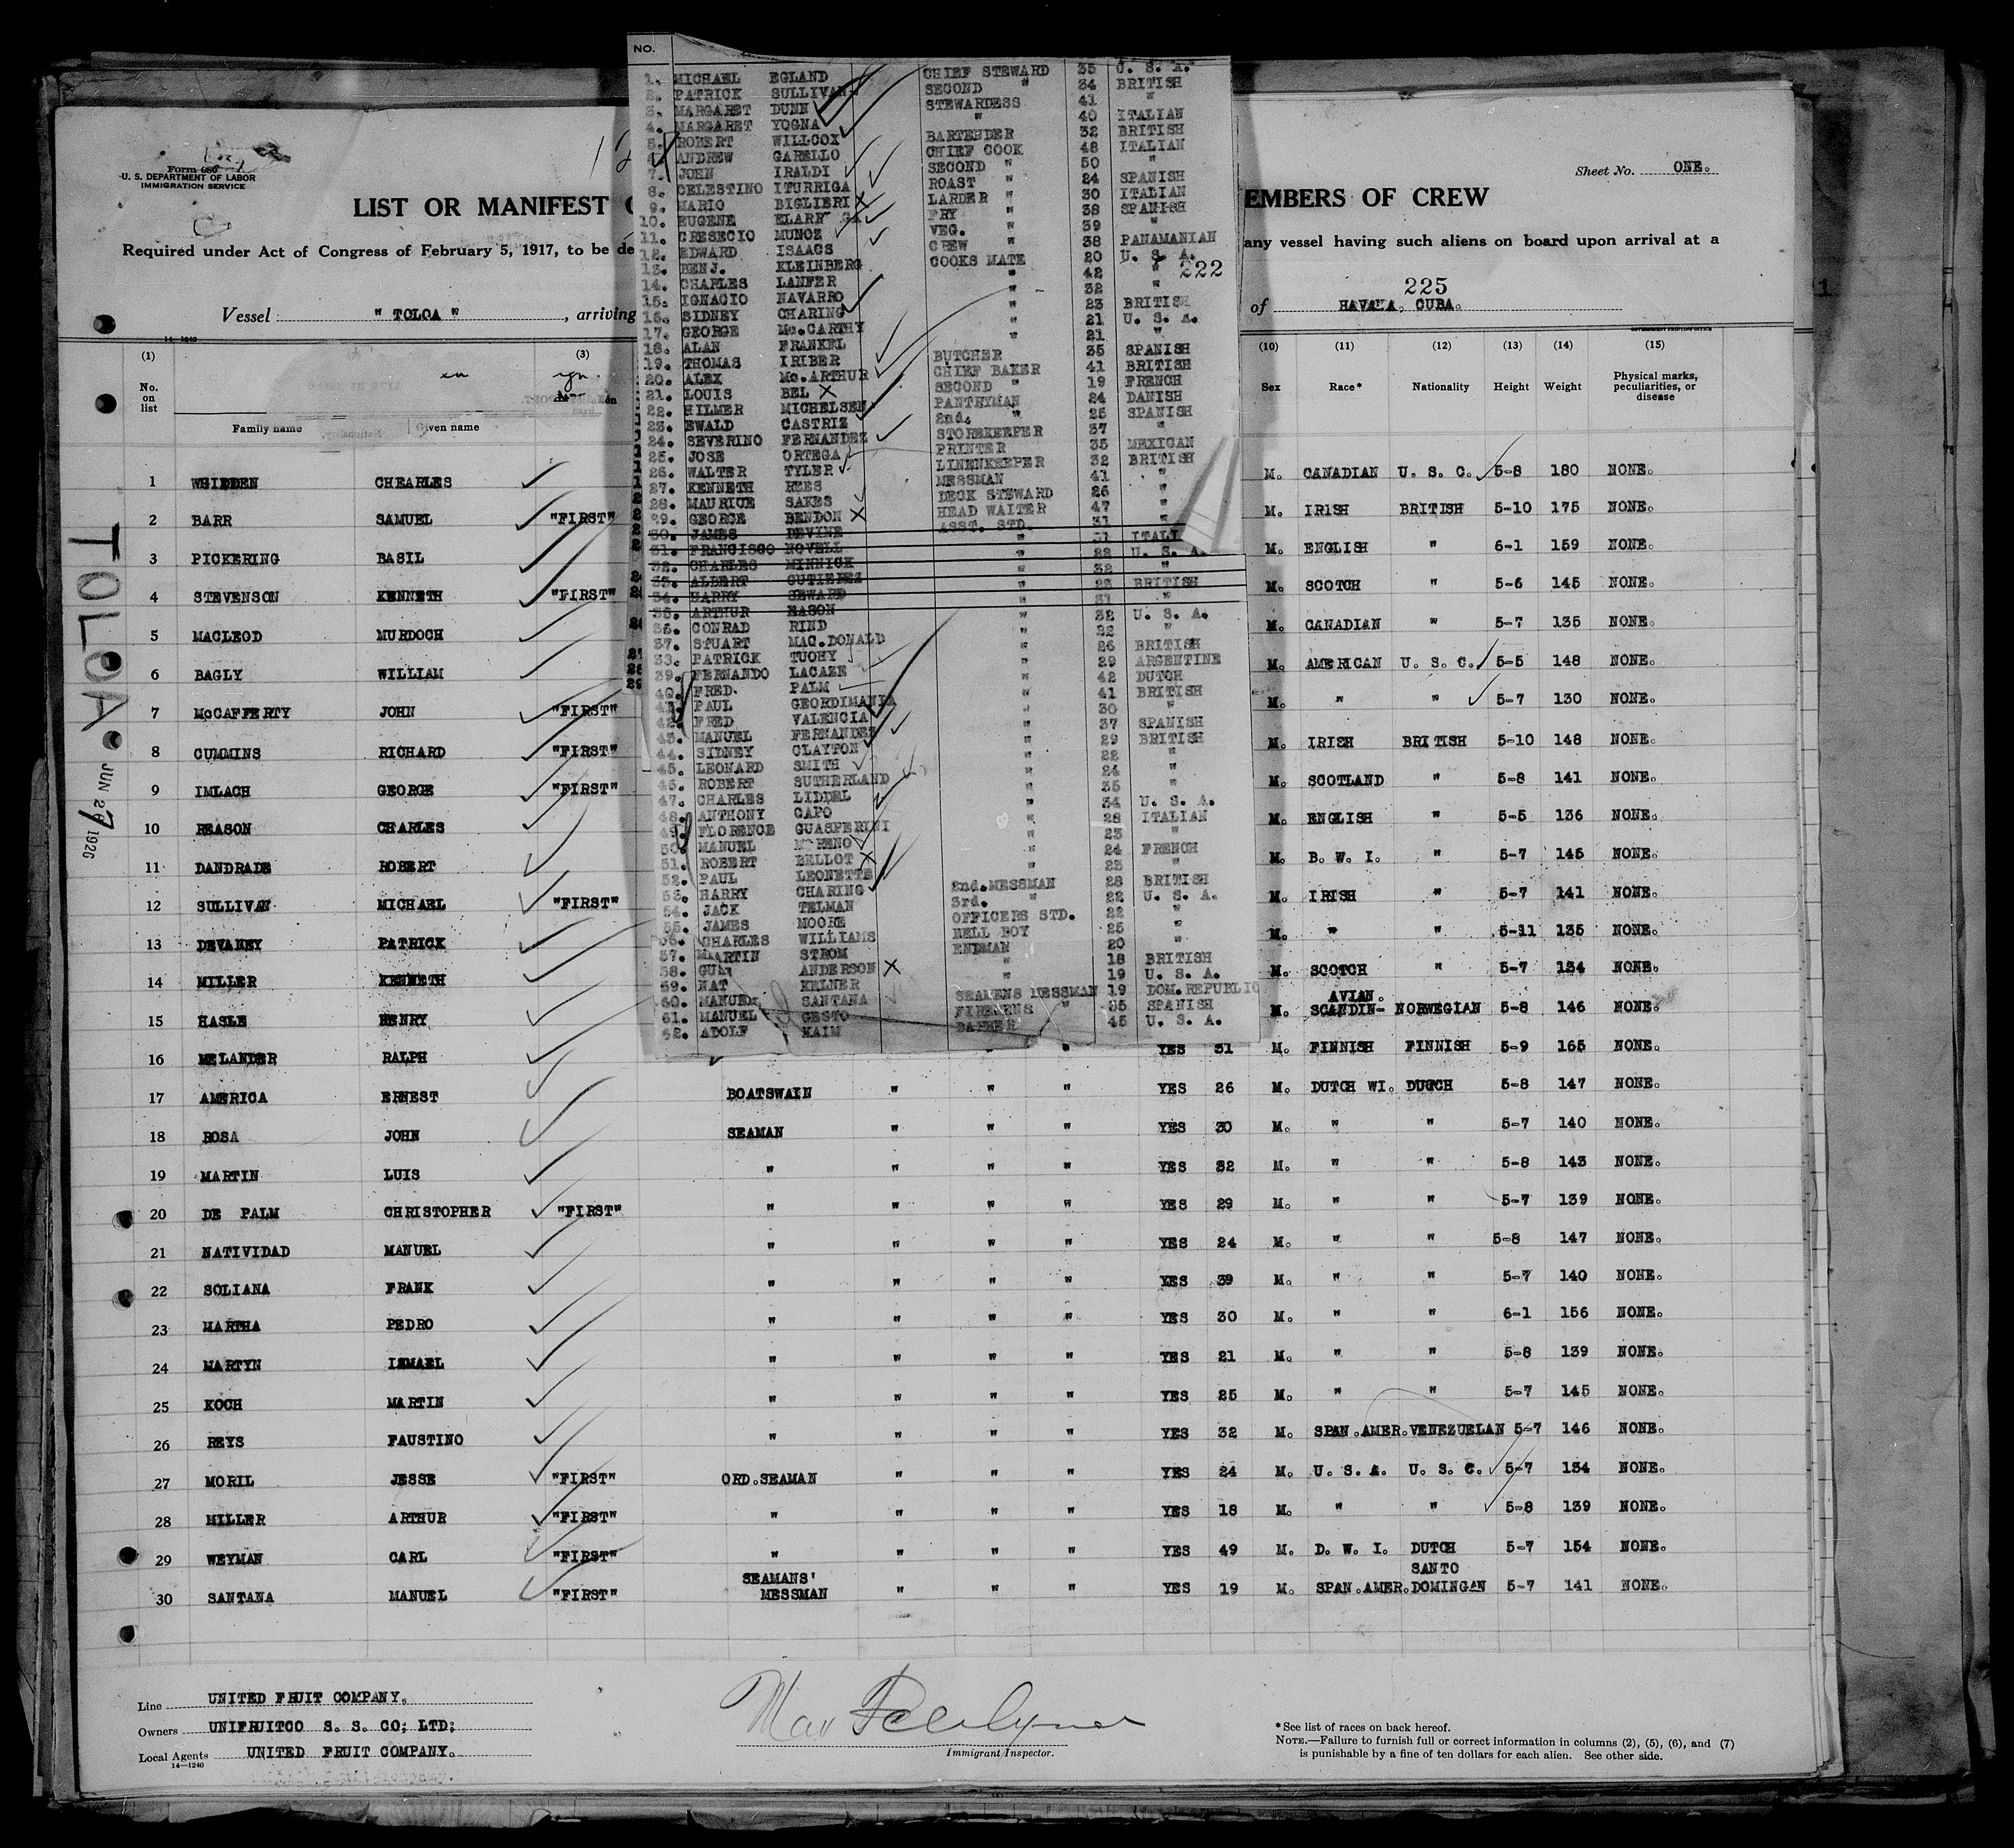 Form 680
U. S. DEPARTMENT OF LABOR
IMMIGRATION SERVICE
Sheet No. ONE.
LIST OR MANIFEST
EMBERS OF CREW
Required under Act of Congress of February 5, 1917, to be de
any vessel having such aliens on board upon arrival at a
225
Vessel " TOLOA " , arriving
of HAVANA, CUBA.
222
NO.
1. MICHAEL EGLAND CHIEF STEWARD 35 U. S. A.
2. PATRICK SULLIVAN SECOND " 34 BRITISH
3. MARGARET DUNN STEWARDESS 41 "
4. MARGARET YOGNA " 40 ITALIAN
5. ROBERT WILLCOX BARTENDER 32 BRITISH
6. ANDREW GARELLO CHIEF COOK 48 ITALIAN
7. JOHN IRALDI SECOND " 50 "
8. CELESTINO ITURRIGA ROAST " 24 SPANISH
9. MARIO BIGLIERI LARDER " 30 ITALIAN
10. EUGENE FRY " 38 SPANISH
11. CRESECIO MUNOZ VEG. " 39 "
12. EDWARD ISAACS CREW " 38 PANAMANIAN
13. BENJ. KLEINBERG COOKS MATE 20 U. S. A.
14. CHARLES LANFER " 42 "
15. IGNACIO NAVARRO " 32 "
16. SIDNEY CHARING " 23 BRITISH
17. GEORGE Mc.CARTHY " 21 U. S. A.
18. ALAN FRANKEL " 21 "
19. THOMAS IRIBER BUTCHER 35 SPANISH
20. ALEX Mc.ARTHUR CHIEF BAKER 41 BRITISH
21. LOUIS BEL SECOND " 19 FRENCH
22. HILMER MICHELSEN PANTRYMAN 24 DANISH
23. EWALD CASTRIZ 2nd. " 25 SPANISH
24. SEVERINO FERNANDEZ STOREKEEPER 37 "
25. JOSE ORTEGA PRINTER 35 MEXICAN
26. WALTER TYLER LINENKEEPER 32 BRITISH
27. KENNETH REES MESSMAN 41 "
28. MAURICE SAKES DECK STEWARD 26 "
29. GEORGE BENDON HEAD WAITER 47 "
30. JAMES DEVINE ASST. STD. 31 "
31. FRANCISCO NOVELL " 31 ITALI
32. CHARLES MINNICK " 22 U. S. A.
33. ALBERT GUTIEREZ " 32 "
34. HARRY SEWARD " 23 BRITISH
35. ARTHUR EASON " 31 "
36. CONRAD RIND " 32 U. S. A.
37. STUART MAC.DONALD " 22 "
38. PATRICK TUOHY " 26 BRITISH
39. FERNANDO LACAZE " 29 ARGENTINE
40. FRED. PALM " 42 DUTCH
41. PAUL GEORDIMANIA " 41 BRITISH
42. FRED VALENCIA " 30 "
43. MANUEL FERNANDEZ " 37 SPANISH
44. SIDNEY CLAYTON " 29 BRITISH
45. LEONARD SMITH " 22 "
46. ROBERT SUTHERLAND " 24 "
47. CHARLES LIDDEL " 35 "
48. ANTHONY CAPO " 34 U. S. A.
49. FLORENCE GUASPERINI " 28 ITALIAN
50. MANUEL MORENO " 23 "
51. ROBERT BELLOT " 24 FRENCH
52. PAUL LEONETTE " 23 "
53. HARRY CHARING 2nd.MESSMAN 28 BRITISH
54. JACK TELMAN 3rd. " 22 U. S. A.
55. JAMES MOORE OFFICERS STD. 22 "
56. CHARLES WILLIAMS BELL BOY 25 "
57. MARTIN STROM ENDMAN 20 "
58. GUS ANDERSON " 18 BRITISH
59. NAT KELNER " 19 U. S. A.
60. MANUEL SANTANA SEAMENS MESSMAN 19 DOM.REPUBLIC
61. MANUEL GESTO FIREMENS " 35 SPANISH
62. ADOLF KAIM BARBER 45 U. S. A.
(1) (3) (10) (11) (12) (13) (14) (15)
No. on list
Family name Given name
Sex Race* Nationality Height Weight Physical marks, peculiarities, or disease
1 WGIDDEN CHEARLES M. CANADIAN U. S. C. 5-8 180 NONE.
2 BARR SAMUEL "FIRST" M. IRISH BRITISH 5-10 175 NONE.
3 PICKERING BASIL M. ENGLISH " 6-1 159 NONE.
4 STEVENSON KENNETH "FIRST" M. SCOTCH " 5-6 145 NONE.
5 MACLEOD MURDOCH M. CANADIAN " 5-7 135 NONE.
6 BAGLY WILLIAM M. AMERICAN U. S. C. 5-5 148 NONE.
7 McCAFFERTY JOHN "FIRST" M. " " 5-7 130 NONE.
8 CUMMINS RICHARD "FIRST" M. IRISH BRITISH 5-10 148 NONE.
9 IMLACH GEORGE "FIRST" M. SCOTLAND " 5-8 141 NONE.
10 REASON CHARLES M. ENGLISH " 5-5 136 NONE.
11 DANDRADE ROBERT M. B. W. I. " 5-7 145 NONE.
12 SULLIVAN MICHAEL "FIRST" M. IRISH " 5-7 141 NONE.
13 DEVANEY PATRICK M. " " 5-11 135 NONE.
14 MILLER KENNETH M. SCOTCH " 5-7 134 NONE.
AVIAN.
15 HASLE HENRY M. SCANDIN- NORWEGIAN 5-8 146 NONE.
16 MELANDER RALPH " " YES 31 M. FINNISH FINNISH 5-9 165 NONE.
17 AMERICA ERNEST BOATSWAIN " " " YES 26 M. DUTCH WI. DUTCH 5-8 147 NONE.
18 ROSA JOHN SEAMAN " " " YES 30 M. " " 5-7 140 NONE.
19 MARTIN LUIS " " " " YES 32 M. " " 5-8 143 NONE.
20 DE PALM CHRISTOPHER "FIRST" " " " " YES 29 M. " " 5-7 139 NONE.
21 NATIVIDAD MANUEL " " " " YES 24 M. " " 5-8 147 NONE.
22 SOLIANA FRANK " " " " YES 39 M. " " 5-7 140 NONE.
23 MARTHA PEDRO " " " " YES 30 M. " " 6-1 156 NONE.
24 MARTYN ISMAEL " " " " YES 21 M. " " 5-8 139 NONE.
25 KOCH MARTIN " " " " YES 25 M. " " 5-7 145 NONE.
26 REYS FAUSTINO " " " " YES 32 M. SPAN.AMER. VENEZUELAN 5-7 146 NONE.
27 MORIL JESSE "FIRST" ORD.SEAMAN " " " YES 24 M. U. S. A. U. S. C. 5-7 134 NONE.
28 MILLER ARTHUR "FIRST" " " " " YES 18 M. " " 5-8 139 NONE.
29 WEYMAN CARL "FIRST" " " " " YES 49 M. D. W. I. DUTCH 5-7 154 NONE.
SEAMANS' SANTO
30 SANTANA MANUEL "FIRST" MESSMAN " " " YES 19 M. SPAN.AMER. DOMINGAN 5-7 141 NONE.
TOLOA
JUN 27 1926
Line UNITED FRUIT COMPANY.
Owners UNIFRUITCO S. S. CO; LTD;
Local Agents UNITED FRUIT COMPANY.
14—1240
Immigrant Inspector.
*See list of races on back hereof.
NOTE.—Failure to furnish full or correct information in columns (2), (5), (6), and (7)
is punishable by a fine of ten dollars for each alien. See other side.